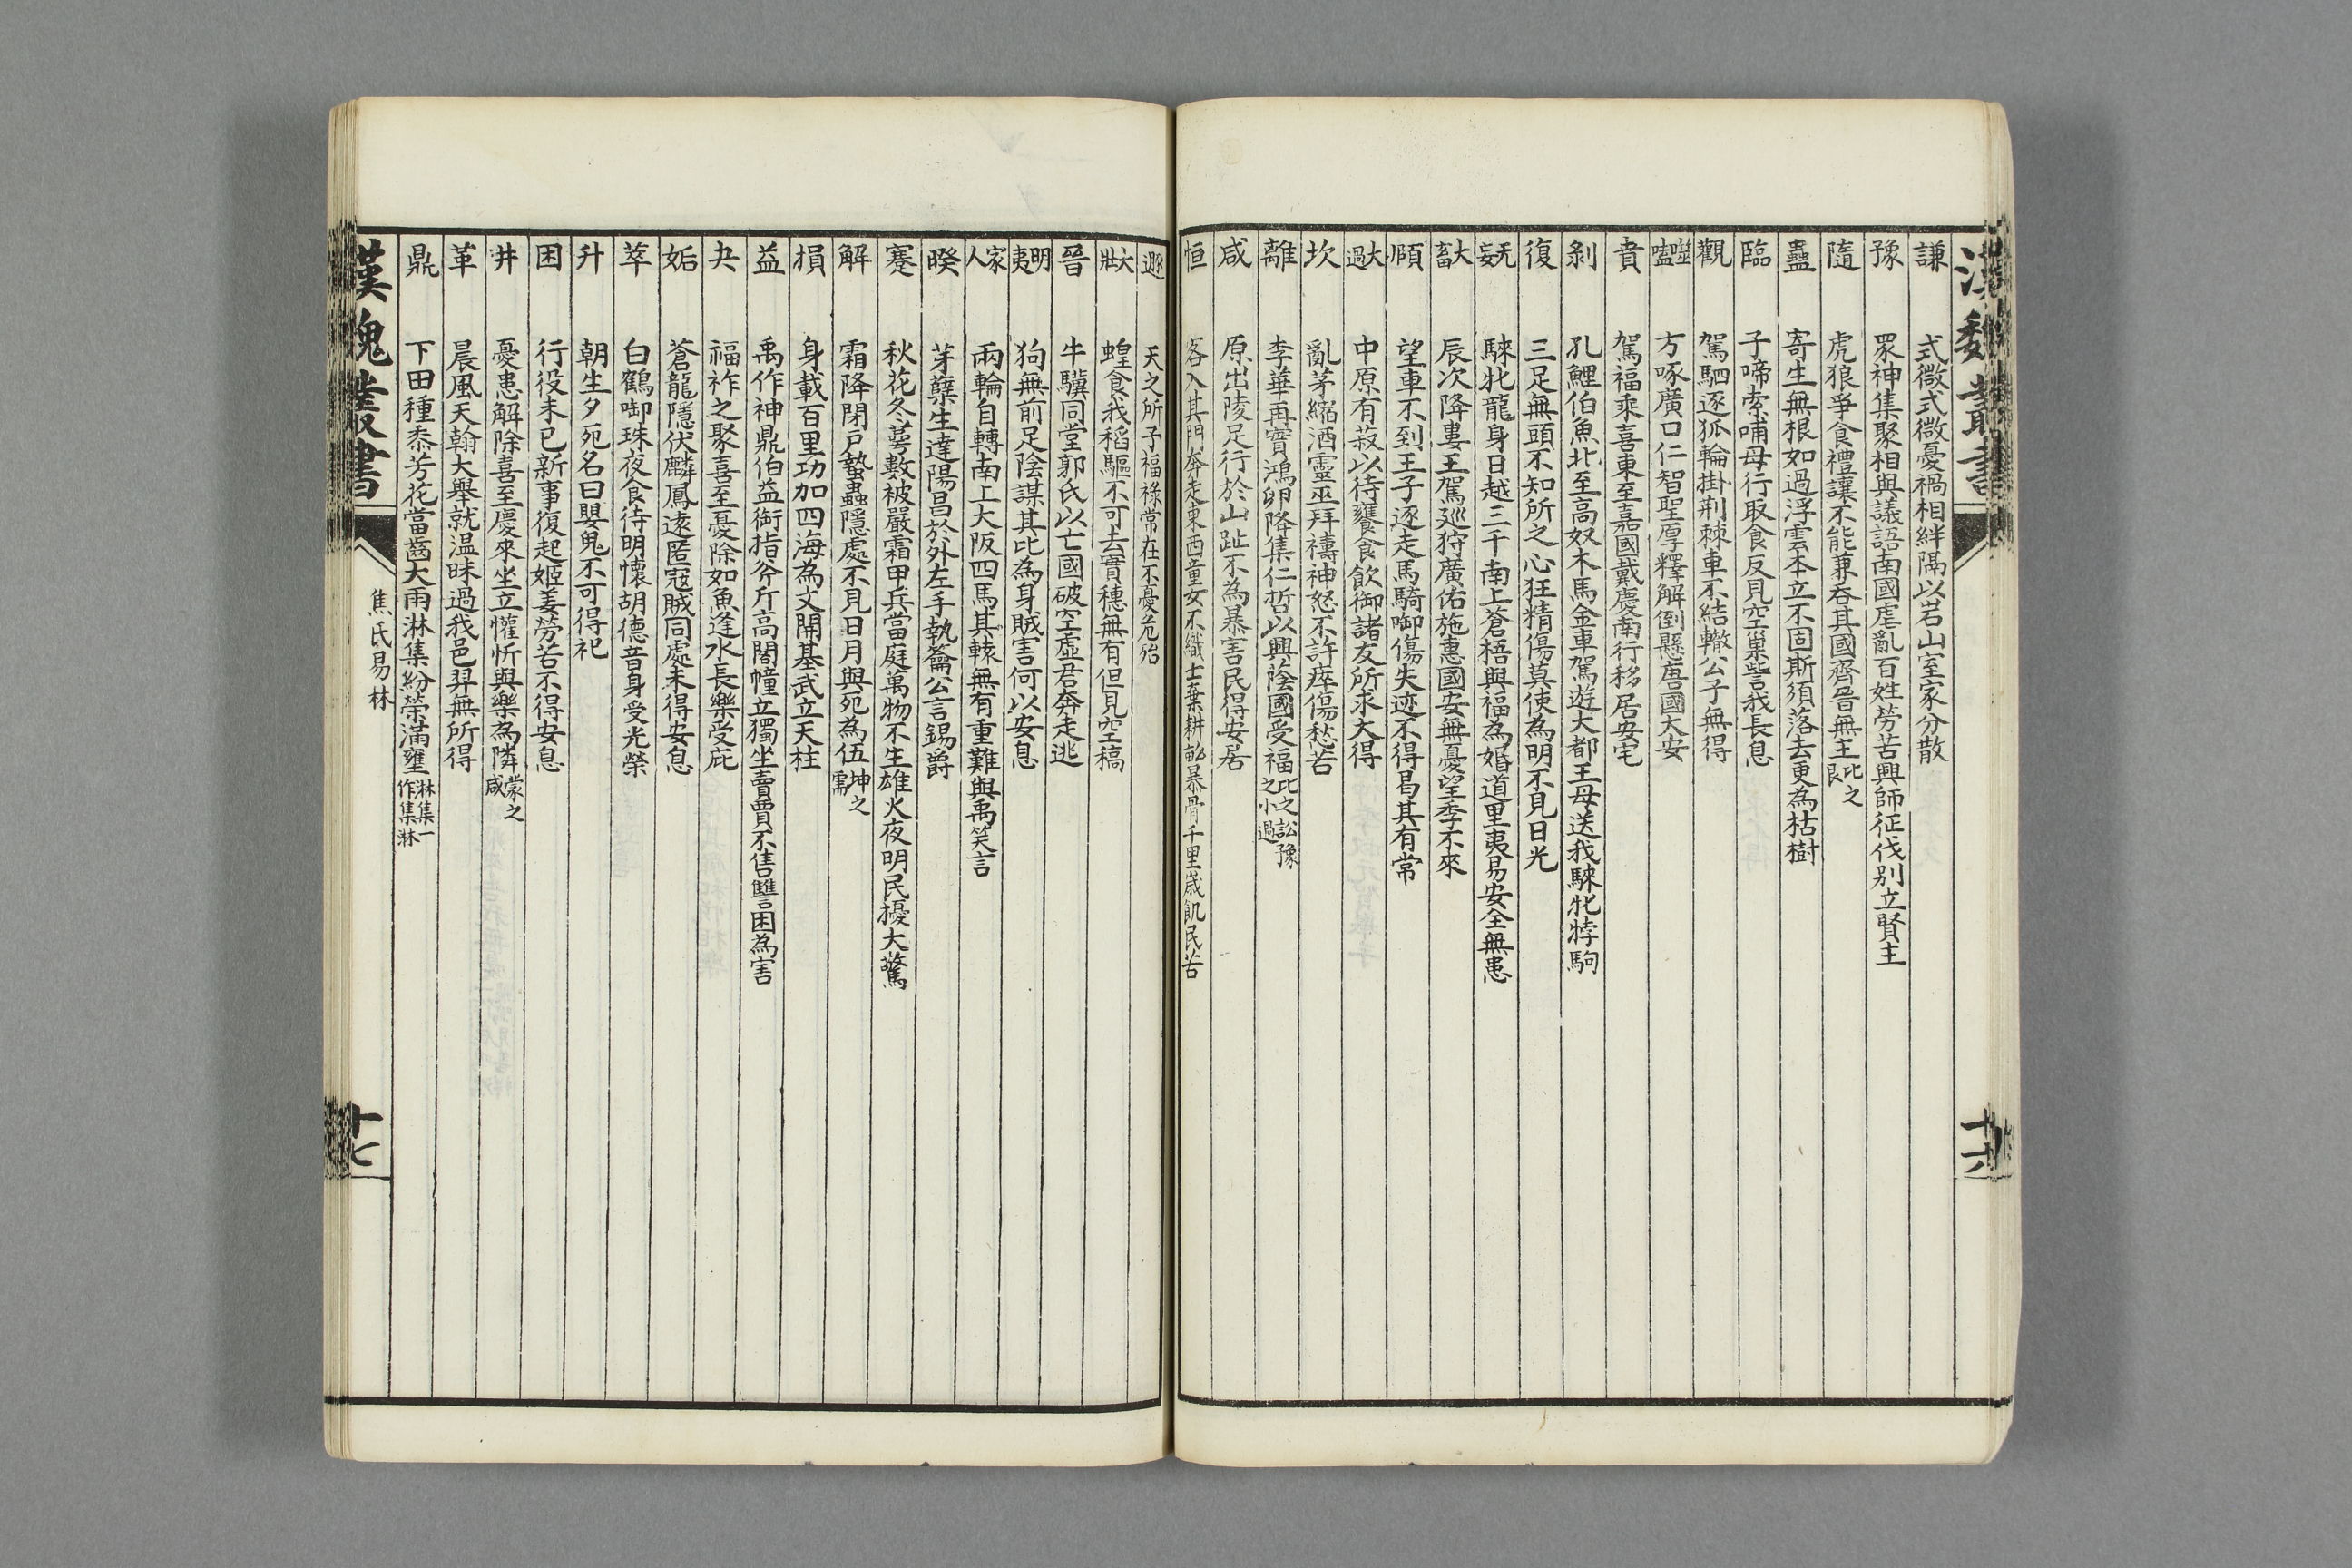 漢魏叢書
十六
謙 式微式微憂禍相絆隔以岩山室家分散
豫 眾神集聚相與議語南國虐亂百姓勞苦興師征伐别立賢主
隨 虎狼爭食禮讓不能兼吞其國齊晉無主比之艮
蠱 寄生無根如過浮雲本立不固斯須落去更為枯樹
臨 子啼索哺母行取食反見空巢訾我長息
觀 駕駟逐狐輪掛荆棘車不結轍公子無得
噬嗑 方啄廣口仁智聖厚釋解倒懸唐國大安
賁 駕福乘喜東至嘉國戴慶南行移居安宅
剝 孔鯉伯魚北至高奴木馬金車駕遊大都王母送我騋牝牸駒
復 三足無頭不知所之心狂精傷莫使為明不見日光
无妄 騋牝龍身日越三千南上蒼梧與福為婚道里夷易安全無患
大畜 辰次降婁王駕巡狩廣佑施惠國安無憂望季不來
頤 望車不到王子逐走馬騎啣傷失迹不得曷其有常
大過 中原有菽以待饔食飲御諸友所求大得
坎 亂茅縮酒靈巫拜禱神怒不許瘁傷愁苦
離 李華再實鴻卵降集仁哲以興蔭國受福比之訟豫之小過
咸 原出陵足行於山趾不為暴害民得安居
恒 客入其門奔走東西童女不織士棄耕畝暴骨千里歲飢民苦
遯 天之所予福祿常在不憂危殆
大壯 蝗食我稻驅不可去實穗無有但見空稿
晉 牛驥同堂郭氏以亡國破空虛君奔走逃
明夷 狗無前足陰謀其北為身賊害何以安息
家人 兩輪自轉南上大阪四馬其轅無有重難與禹笑言
睽 芽蘖生達陽昌於外左手執籥公言錫爵
蹇 秋花冬萼數被嚴霜甲兵當庭萬物不生雄火夜明民擾大驚
解 霜降閉戸蟄蟲隱處不見日月與死為伍坤之需
損 身載百里功加四海為文開基武立天柱
益 禹作神鼎伯益銜指斧斤高閣幢立獨坐賣賈不售讐困為害
夬 福祚之聚喜至憂除如魚逢水長樂受庇
姤 蒼龍隱伏麟鳳遠匿寇賊同處未得安息
萃 白鶴啣珠夜食待明懷胡德音身受光榮
升 朝生夕死名曰嬰鬼不可得祀
困 行役未已新事復起姬姜勞苦不得安息
井 憂患解除喜至慶來坐立懽忻與樂為隣蒙之咸
革 晨風天翰大舉就温昧過我邑羿無所得
鼎 下田種黍芳花當齒大雨淋集紛荣滿壅淋集一作集淋
漢魏叢書
焦氏易林
十七